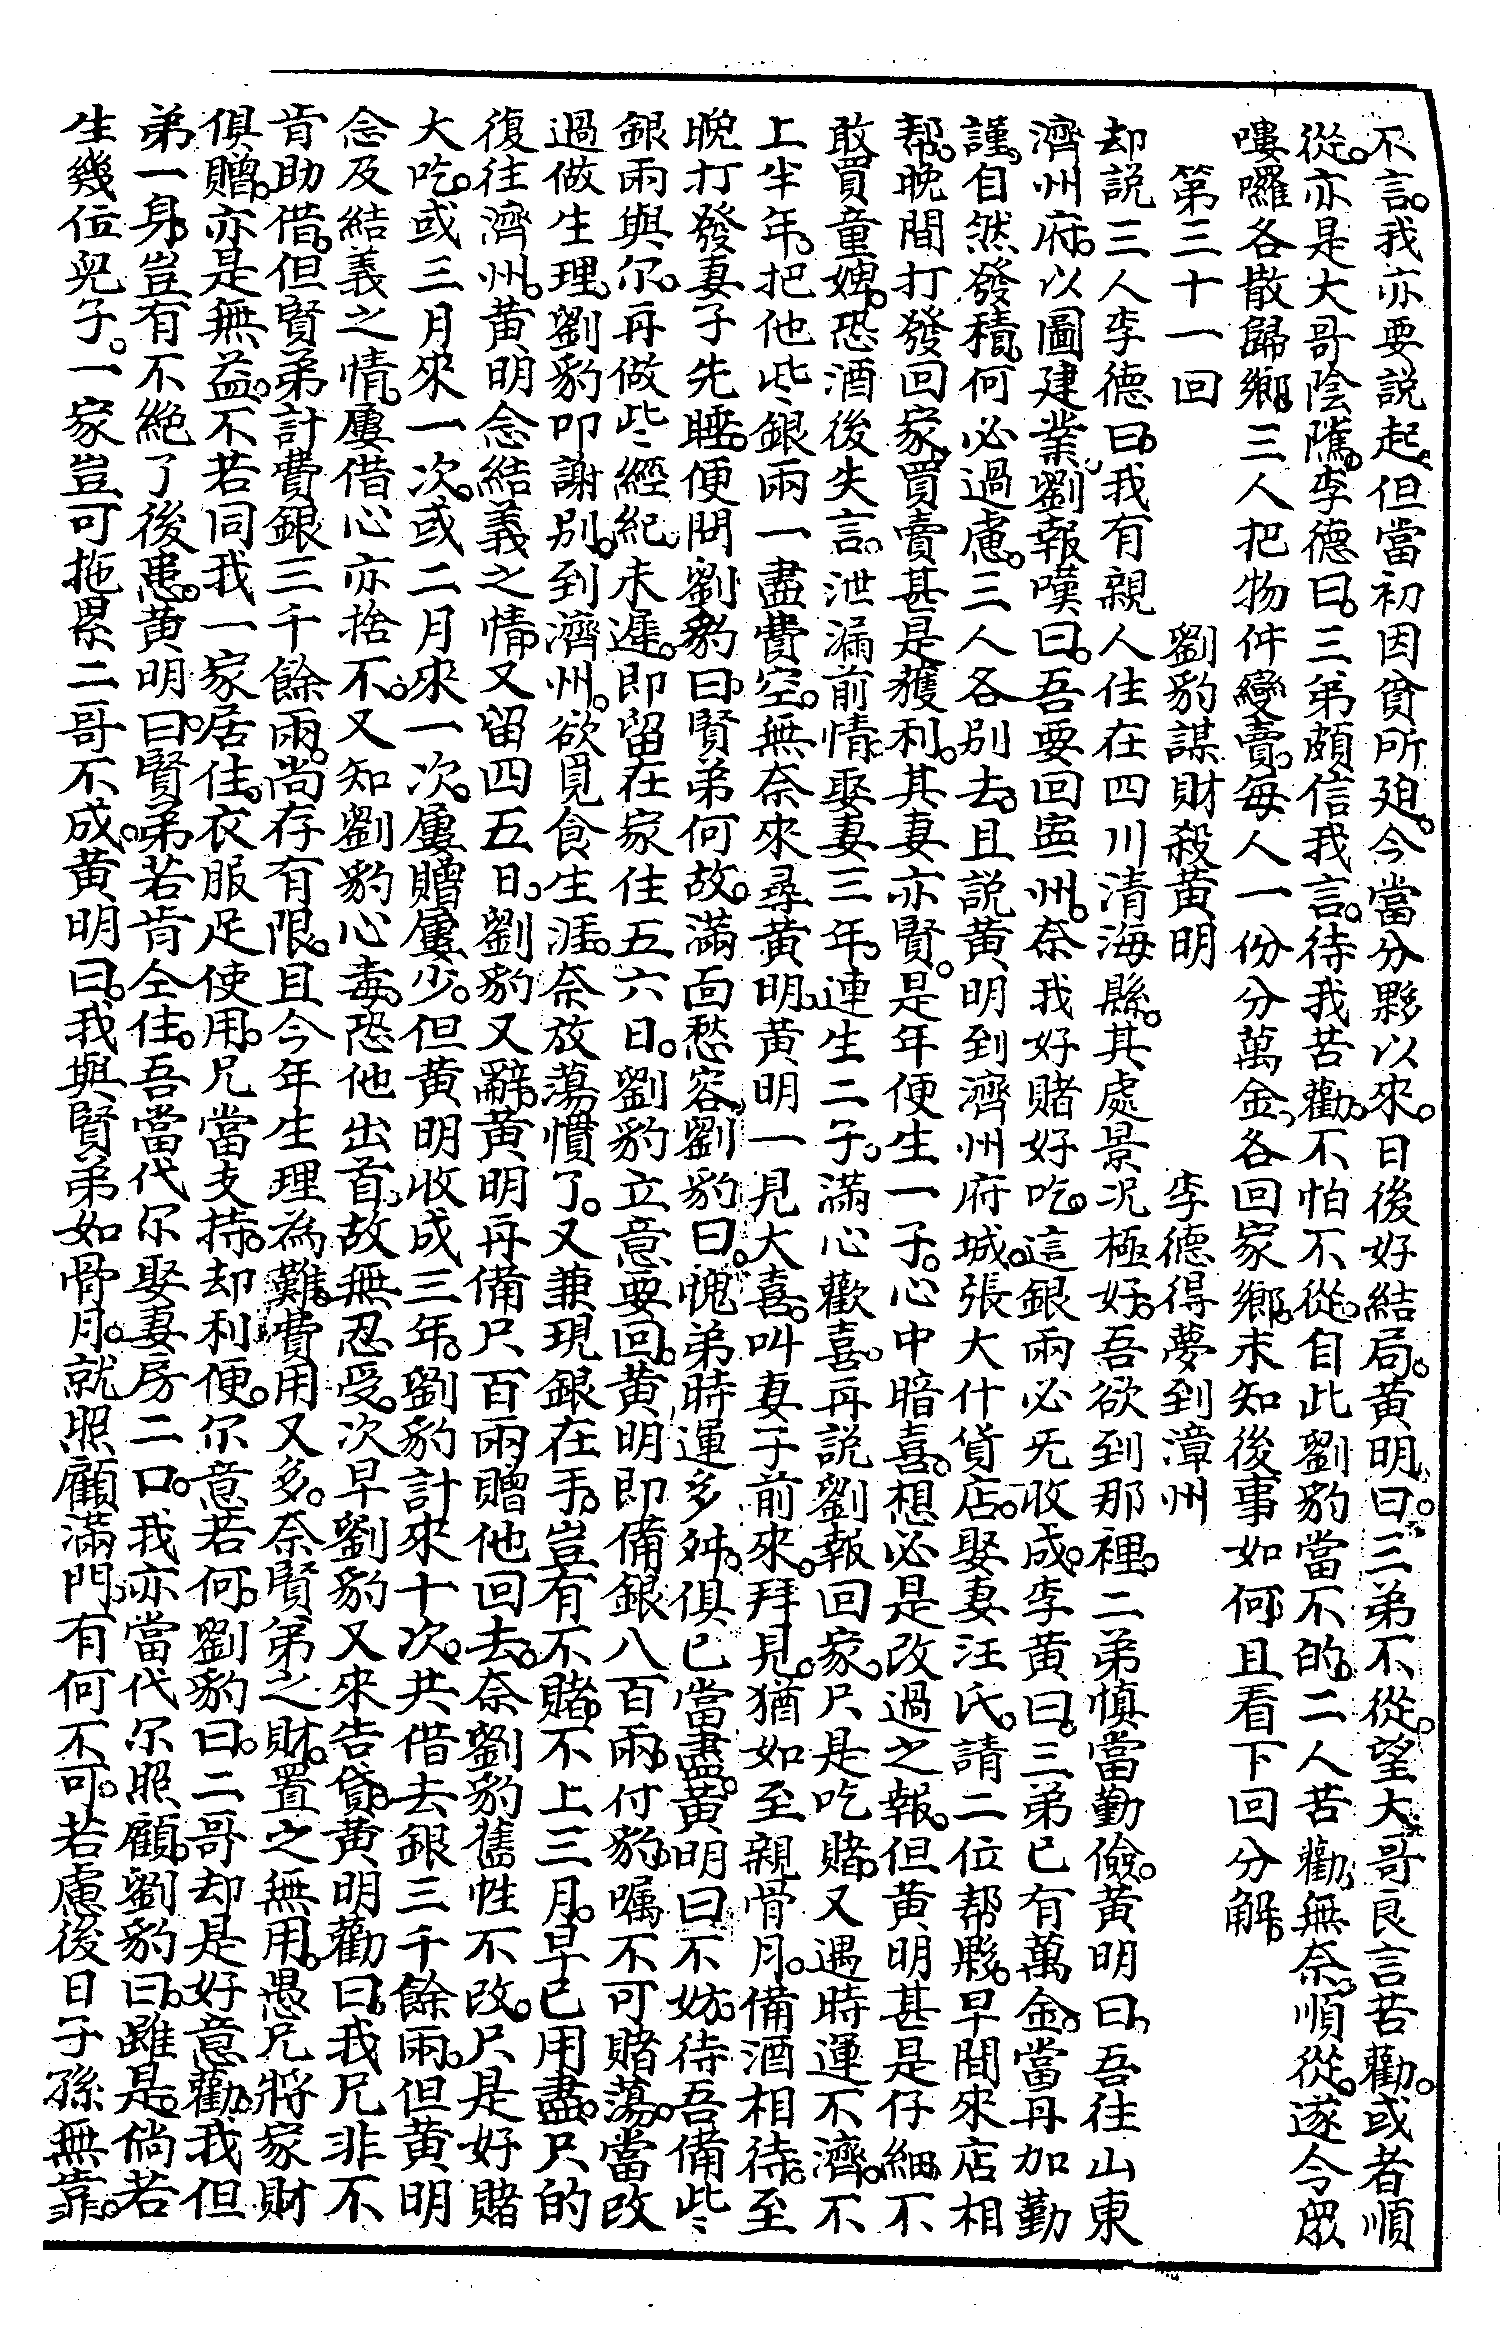 不言。我亦要説起。但當初因貧所廹。今當分夥以來。日後好結局。黄明曰。三弟不從。望大哥良言苦勸。或者順
從。亦是大哥陰隲。李德曰。三弟頗信我言。待我苦勸。不怕不從。自此劉豹當不的。二人苦勸。無奈。順從。遂令眾
嘍囉各散歸鄉。三人把物件變賣。每人一份分萬金。各回家鄉。未知後事如何。且看下回分解。
第三十一回　劉豹謀財殺黄明　李德得夢到漳州
却説三人李德曰。我有親人住在四川清海縣。其處景况極好。吾欲到那裡。二弟慎當勤儉。黄明曰。吾往山東
濟州府。以圖建業。劉報嘆曰。吾要回寧州。奈我好賭好吃。這銀兩必无收成。李黄曰。三弟已有萬金。當再加勤
謹。自然發積。何必過慮。三人各別去。且説黄明到濟州府城。張大什貨店。娶妻汪氏。請二位帮夥。早間來店相
帮。晚間打發回家。買賣甚是獲利。其妻亦賢。是年便生一子。心中暗喜。想必是改過之報。但黄明甚是仔細。不
敢買童婢。恐酒後失言。泄漏前情。娶妻三年。連生二子。滿心歡喜。再説劉報回家。尺是吃賭。又遇時運不濟。不
上半年。把他些銀兩一盡費空。無奈來尋黄明。黄明一見大喜。叫妻子前來。拜見。猶如至親骨月。備酒相待。至
晚打發妻子先睡。便問劉豹曰。賢弟何故。滿面愁容。劉豹曰。愧弟時運多舛。俱已當盡。黄明曰不妨。待吾備些
銀兩與尔。再做些經紀。未遲。即留在家住五六日。劉豹立意要回。黄明即備銀八百兩。付豹。嘱不可賭蕩。當改
過做生理。劉豹叩謝別。到濟州。欲覓食生涯。奈放蕩慣了。又兼現銀在手。豈有不賭。不上三月。早已用盡。只的
復往濟州。黄明念結義之情。又留四五日。劉豹又辭。黄明再備尺百兩贈他回去。奈劉豹舊性不改。尺是好賭
大吃。或三月來一次。或二月來一次。屢贈屢少。但黄明收成三年。劉豹計來十次。共借去銀三千餘兩。但黄明
念及結義之情。屢借心亦捨不。又知劉豹心毒。恐他出首。故無忍受。次早劉豹又來告貸。黄明勸曰。我兄非不
肯助借。但賢弟計費銀三千餘兩。尚存有限。且今年生理為難。費用又多。奈賢弟之財。置之無用。愚兄將家財
俱贈。亦是無益。不若同我一家居住。衣服足使用。兄當支持。却利便。尔意若何。劉豹曰。二哥却是好意勸。我但
弟一身。豈有不絶了後患。黄明曰。賢弟若肯仝住。吾當代尔娶妻房二口。我亦當代尔照顧。劉豹曰。雖是。倘若
生幾位兒子。一家豈可拖累二哥不成。黄明曰。我與賢弟如骨月。就照顧滿門。有何不可。若慮後日子孫無靠。